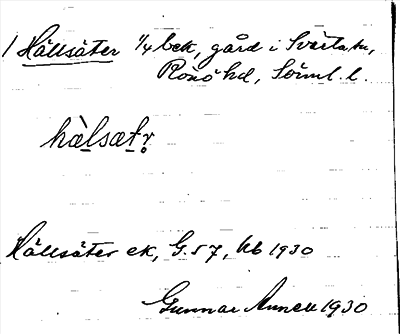 1 Hällsäter 1/4 bek, gård i Svärta sn,
Rönö hd, Söml. l.
hàlsætr
Hällsäter ek, G. 57, Ub 1930
Gunnar Annell 1930